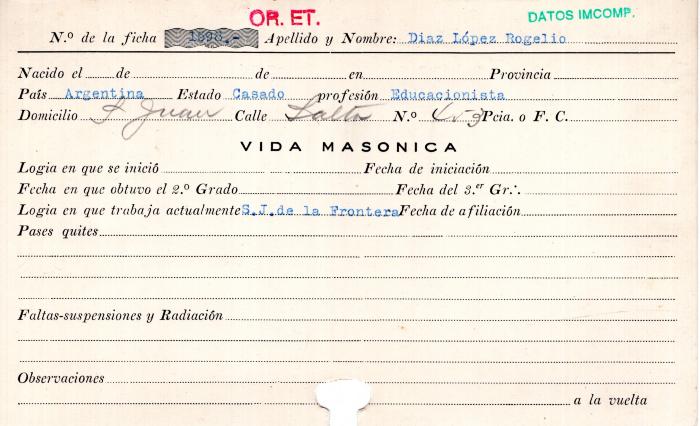 OR. ET.
DATOS IMCOMP.
N.º de la ficha 1898.- Apellido y Nombre: Diaz López Rogelio
Nacido el de de en Provincia
País Argentina Estado Casado profesión Educacionista
Domicilio S Juan Calle Salta N.º 453 Pcia. o F. C.
VIDA MASONICA
Logia en que se inició Fecha de iniciación
Fecha en que obtuvo el 2.º Grado Fecha del 3.er Gr∴
Logia en que trabaja actualmente S.J.de la Frontera Fecha de afiliación
Pases quites
Faltas-suspensiones y Radiación
Observaciones
a la vuelta